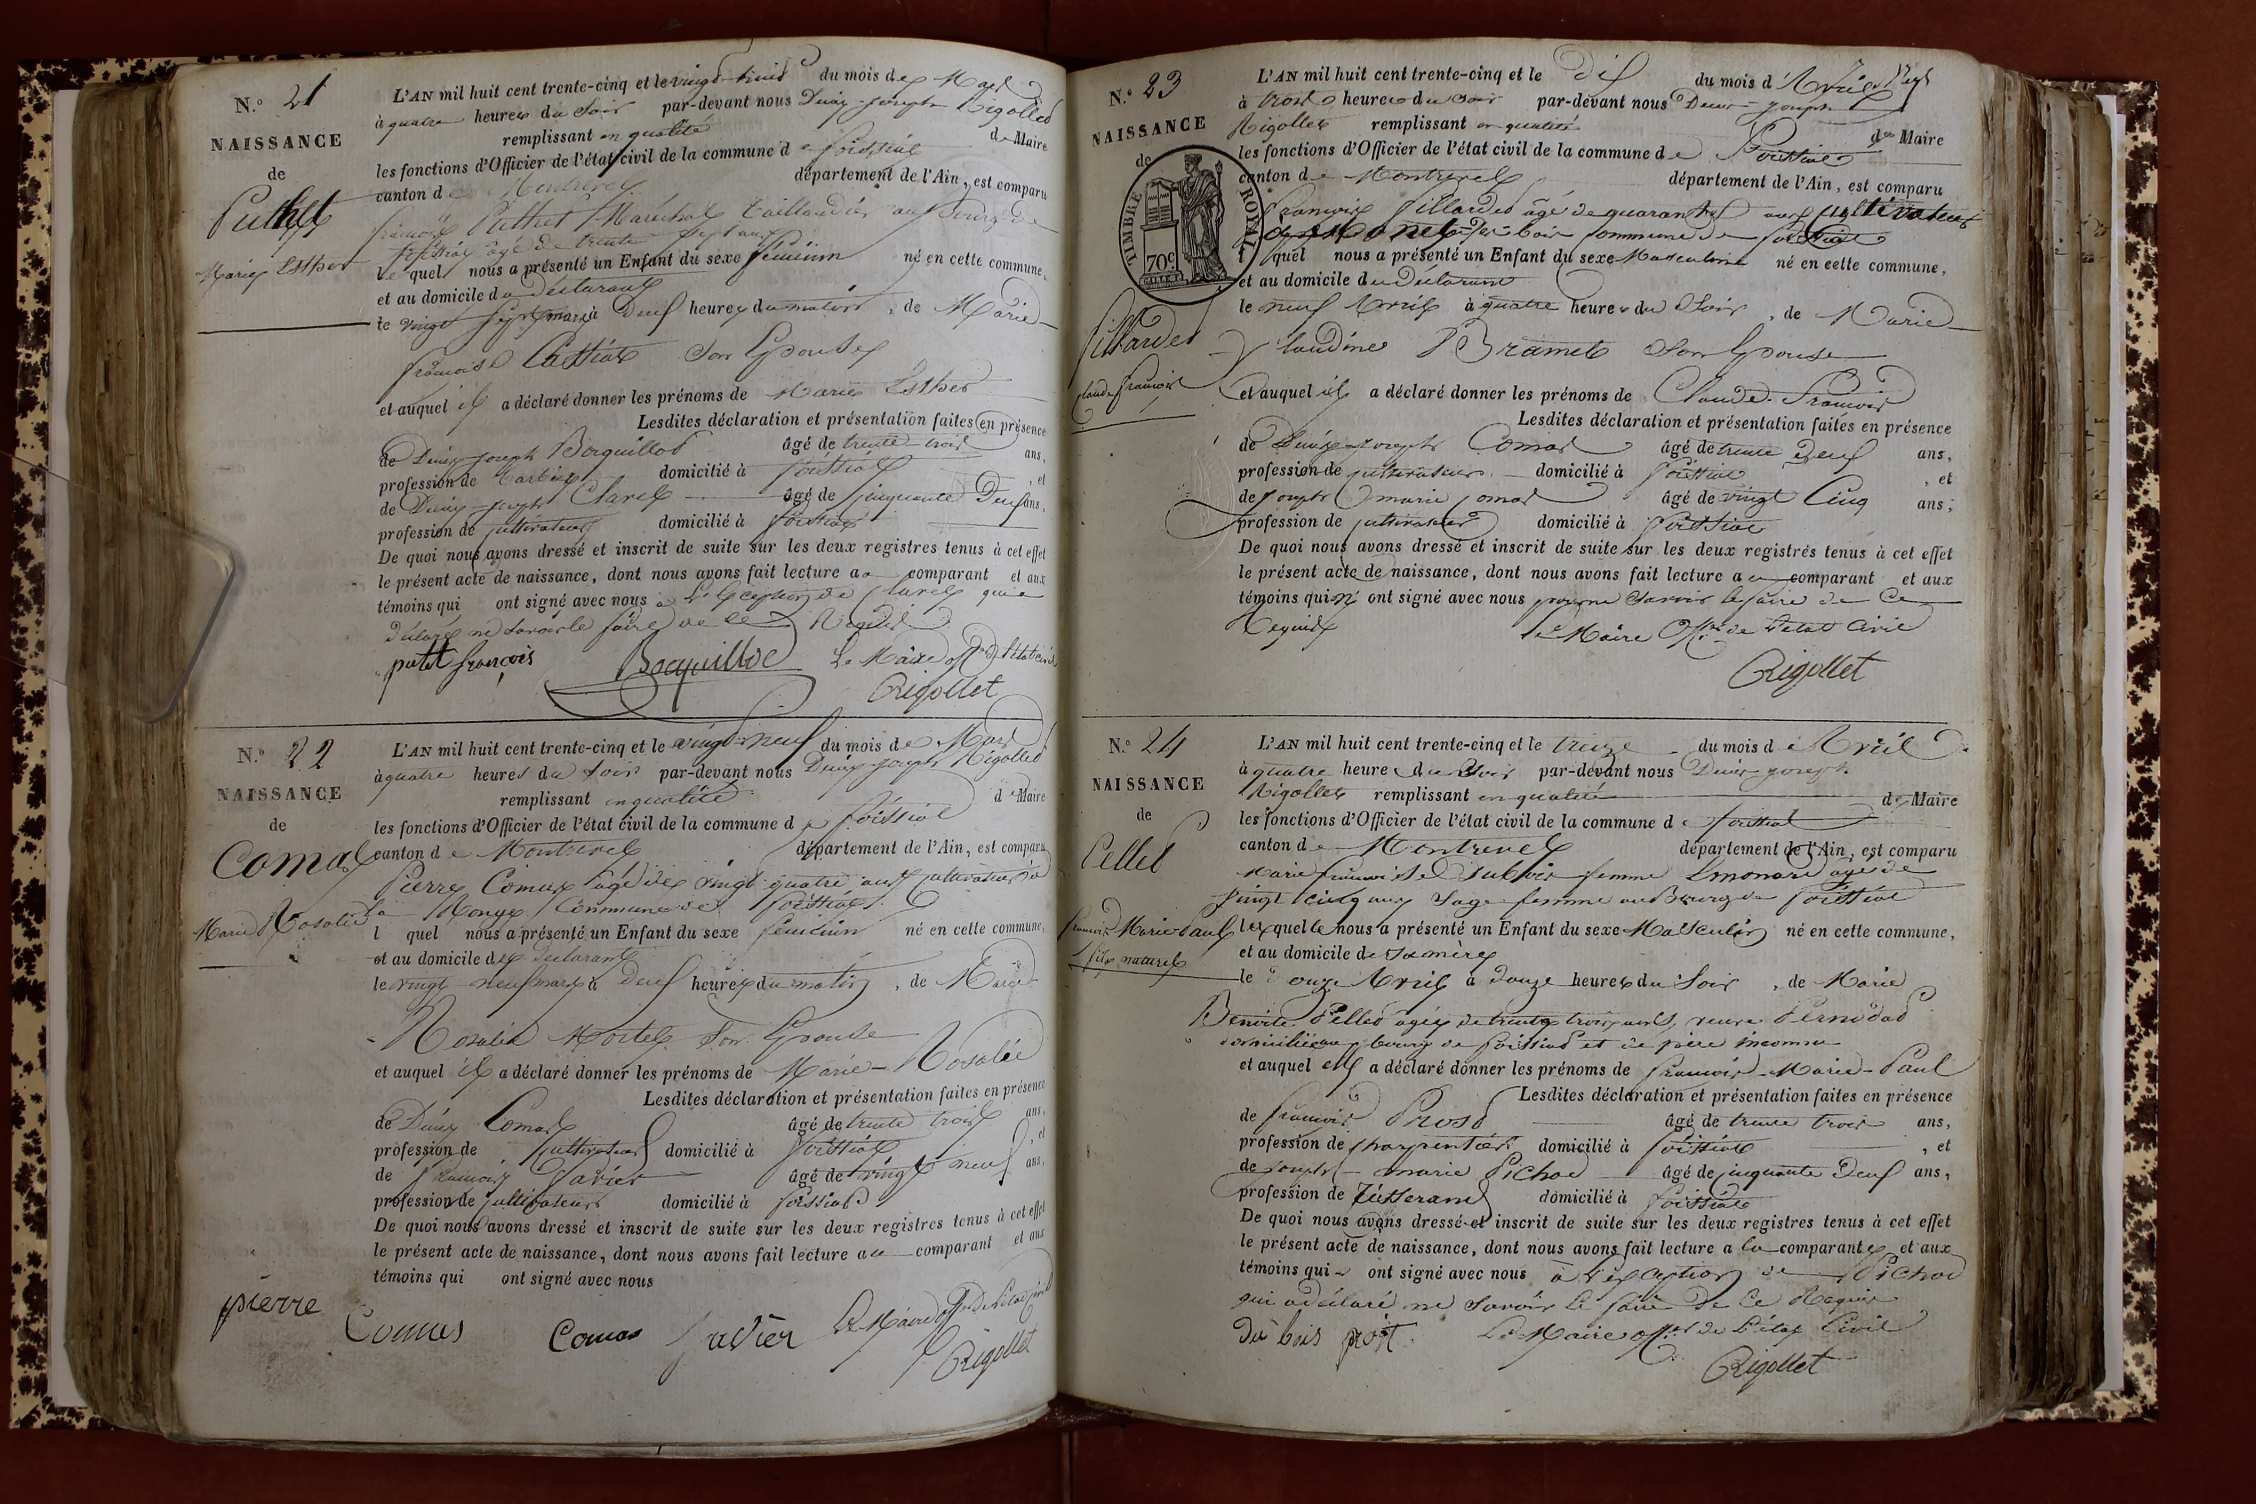 N.° 21
NAISSANCE
de
Puthet
Marie Esther
L'AN mil huit cent trente-cinq et le vingt-huit du mois de Mars
à quatre heures du soir par-devant nous Denis-Joseph Rigollet
remplissant en qualité de Maire
les fonctions d'Officier de l'état civil de la commune de foissiat
canton de Montrevel département de l'Ain, est comparu
françois Puthet Maréchal taillandier au Bourg de
foissiat âgé de trente sept ans
le quel nous a présenté un Enfant du sexe féminin né en cette commune,
et au domicile du déclarant
le vingt sept mars à Deux heures du matin, de Marie
françoise Cattiat son Epouse
et auquel il a déclaré donner les prénoms de Marie Esther
Lesdites déclaration et présentation faites en présence
de Denis-joseph Bocquillod âgé de trente-trois ans,
profession de domicilié à foissiat, et
de Denis-joseph Clarel âgé de cinquante Deux ans,
profession de cultivateur domicilié à foissiat
De quoi nous avons dressé et inscrit de suite sur les deux registres tenus à cet effet
le présent acte de naissance, dont nous avons fait lecture au comparant et aux
témoins qui ont signé avec nous à l'exception de Clarel qui a
déclaré ne savoir le faire de ce Requis
putet françois Bocquillod Le Maire off. de l'état civil
Rigollet
N.° 22
NAISSANCE
de
Comas
Marie Rosalie
L'AN mil huit cent trente-cinq et le vingt-neuf du mois de Mars
à quatre heures du soir par-devant nous Denis-joseph Rigollet
remplissant en qualité de Maire
les fonctions d'Officier de l'état civil de la commune de foissiat
canton de Montrevel département de l'Ain, est comparu
Pierre Comas âgé de vingt-quatre ans cultivateur à
la commune de foissiat
l quel nous a présenté un Enfant du sexe féminin né en cette commune,
et au domicile du déclarant
le vingt-neuf mars à Deux heures du matin, de Marie
Rosalie Mortel son Epouse
et auquel il a déclaré donner les prénoms de Marie-Rosalie
Lesdites déclaration et présentation faites en présence
de Denis Comas âgé de trente trois ans,
profession de cultivateur domicilié à foissiat, et
de françois Javier âgé de vingt neuf ans,
profession de cultivateur domicilié à foissiat
De quoi nous avons dressé et inscrit de suite sur les deux registres tenus à cet effet
le présent acte de naissance, dont nous avons fait lecture au comparant et aux
témoins qui ont signé avec nous
pierre Comas Comas Javier Le Maire off. de l'état civil
Rigollet
N.° 23
NAISSANCE
de
TIMBRE ROYAL
70c
Pillardet
Claude françois
L'AN mil huit cent trente-cinq et le Dix du mois d'Avril
à trois heures du soir par-devant nous Denis-Joseph
Rigollet remplissant en qualité de Maire
les fonctions d'Officier de l'état civil de la commune de foissiat
canton de Montrevel département de l'Ain, est comparu
françois Pillardet âgé de quarante ans cultivateur
commune de foissiat
l quel nous a présenté un Enfant du sexe Masculin né en cette commune,
et au domicile du déclarant
le neuf Avril à quatre heures du soir, de Marie
Claudine Bramet son Epouse
et auquel il a déclaré donner les prénoms de Claude-françois
Lesdites déclaration et présentation faites en présence
de Denis-joseph Comas âgé de trente Deux ans,
profession de cultivateur domicilié à foissiat, et
de joseph marie Comas âgé de vingt Cinq ans;
profession de cultivateur domicilié à foissiat
De quoi nous avons dressé et inscrit de suite sur les deux registres tenus à cet effet
le présent acte de naissance, dont nous avons fait lecture au comparant et aux
témoins qui n' ont signé avec nous pour ne savoir le faire de ce
Requis Le Maire Off. de l'état Civil
Rigollet
N.° 24
NAISSANCE
de
Pellet
françois Marie Paul
fils naturel
L'AN mil huit cent trente-cinq et le treize du mois d'Avril
à quatre heures du soir par-devant nous Denis joseph
Rigollet remplissant en qualité de Maire
les fonctions d'Officier de l'état civil de la commune de foissiat
canton de Montrevel département de l'Ain, est comparu
Marie françoise Dubois femme âgée de
vingt cinq ans sage femme au Bourg de foissiat
la quelle nous a présenté un Enfant du sexe Masculin né en cette commune,
et au domicile de sa mère
le onze Avril à douze heures du soir, de Marie
Benoite Pellet âgée de trente trois ans, veuve
domiciliée au bourg de foissiat et de père inconnu
et auquel elle a déclaré donner les prénoms de françois-Marie-Paul
Lesdites déclaration et présentation faites en présence
de françois Prost âgé de trente trois ans,
profession de charpentier domicilié à foissiat, et
de joseph-marie Pichod âgé de cinquante Deux ans,
profession de tisserand domicilié à foissiat
De quoi nous avons dressé et inscrit de suite sur les deux registres tenus à cet effet
le présent acte de naissance, dont nous avons fait lecture a la comparante et aux
témoins qui ont signé avec nous à l'exception de Pichod
qui a déclaré ne savoir le faire de ce Requis
du bois prost Le Maire off. de l'état Civil
Rigollet